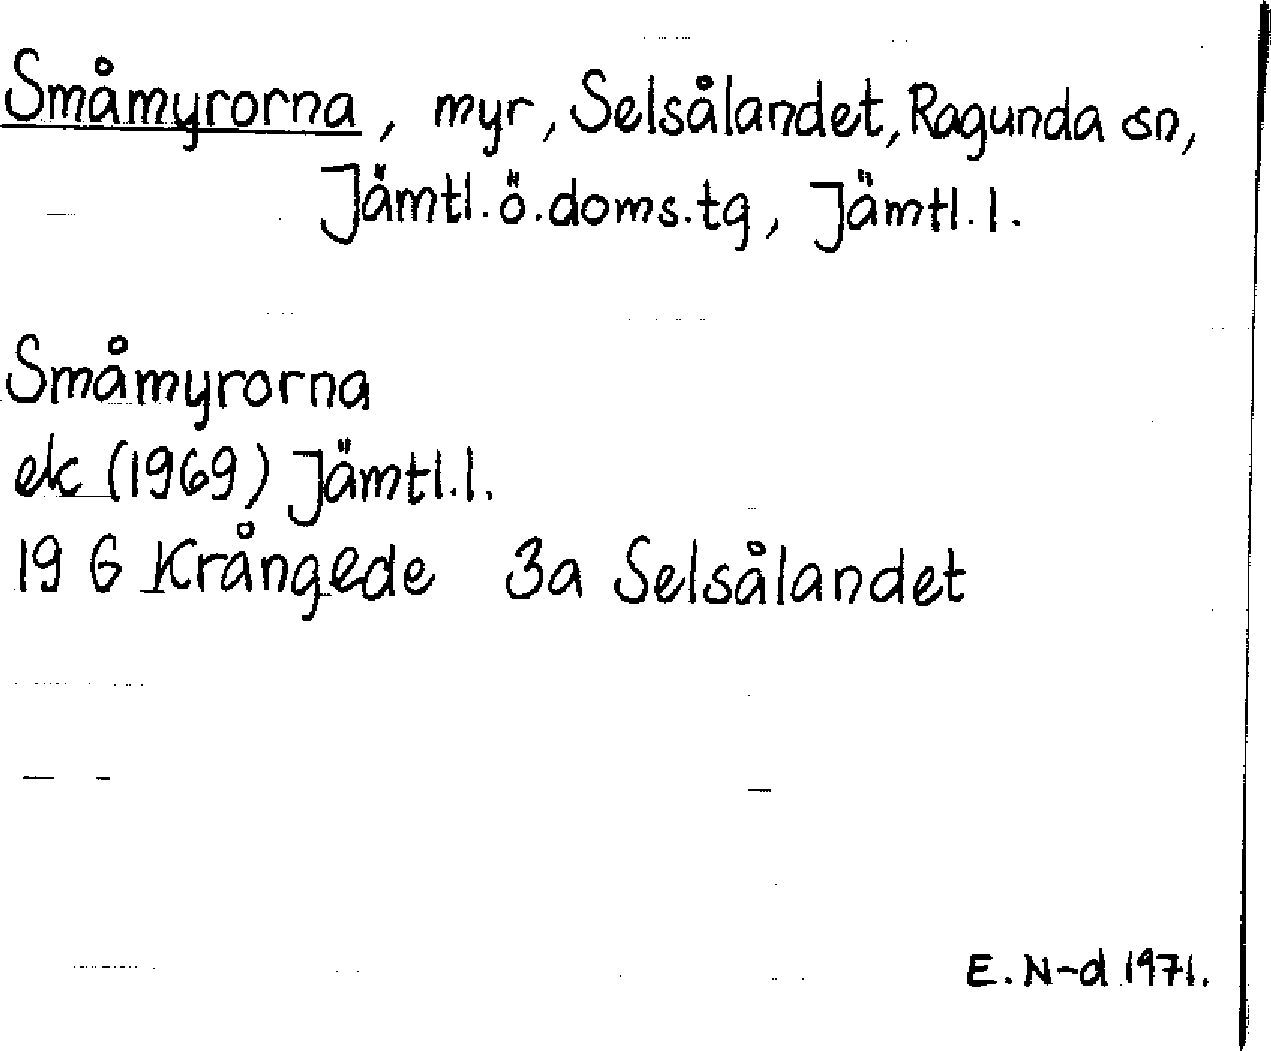 Småmyrorna, myr, Selsålandet, Ragunda sn,
Jämtl. ö. doms. tg, Jämtl. l.
Småmyrorna
ek (1969) Jämtl. l.
19 G Krångede 3a Selsålandet
E. N-d 1971.